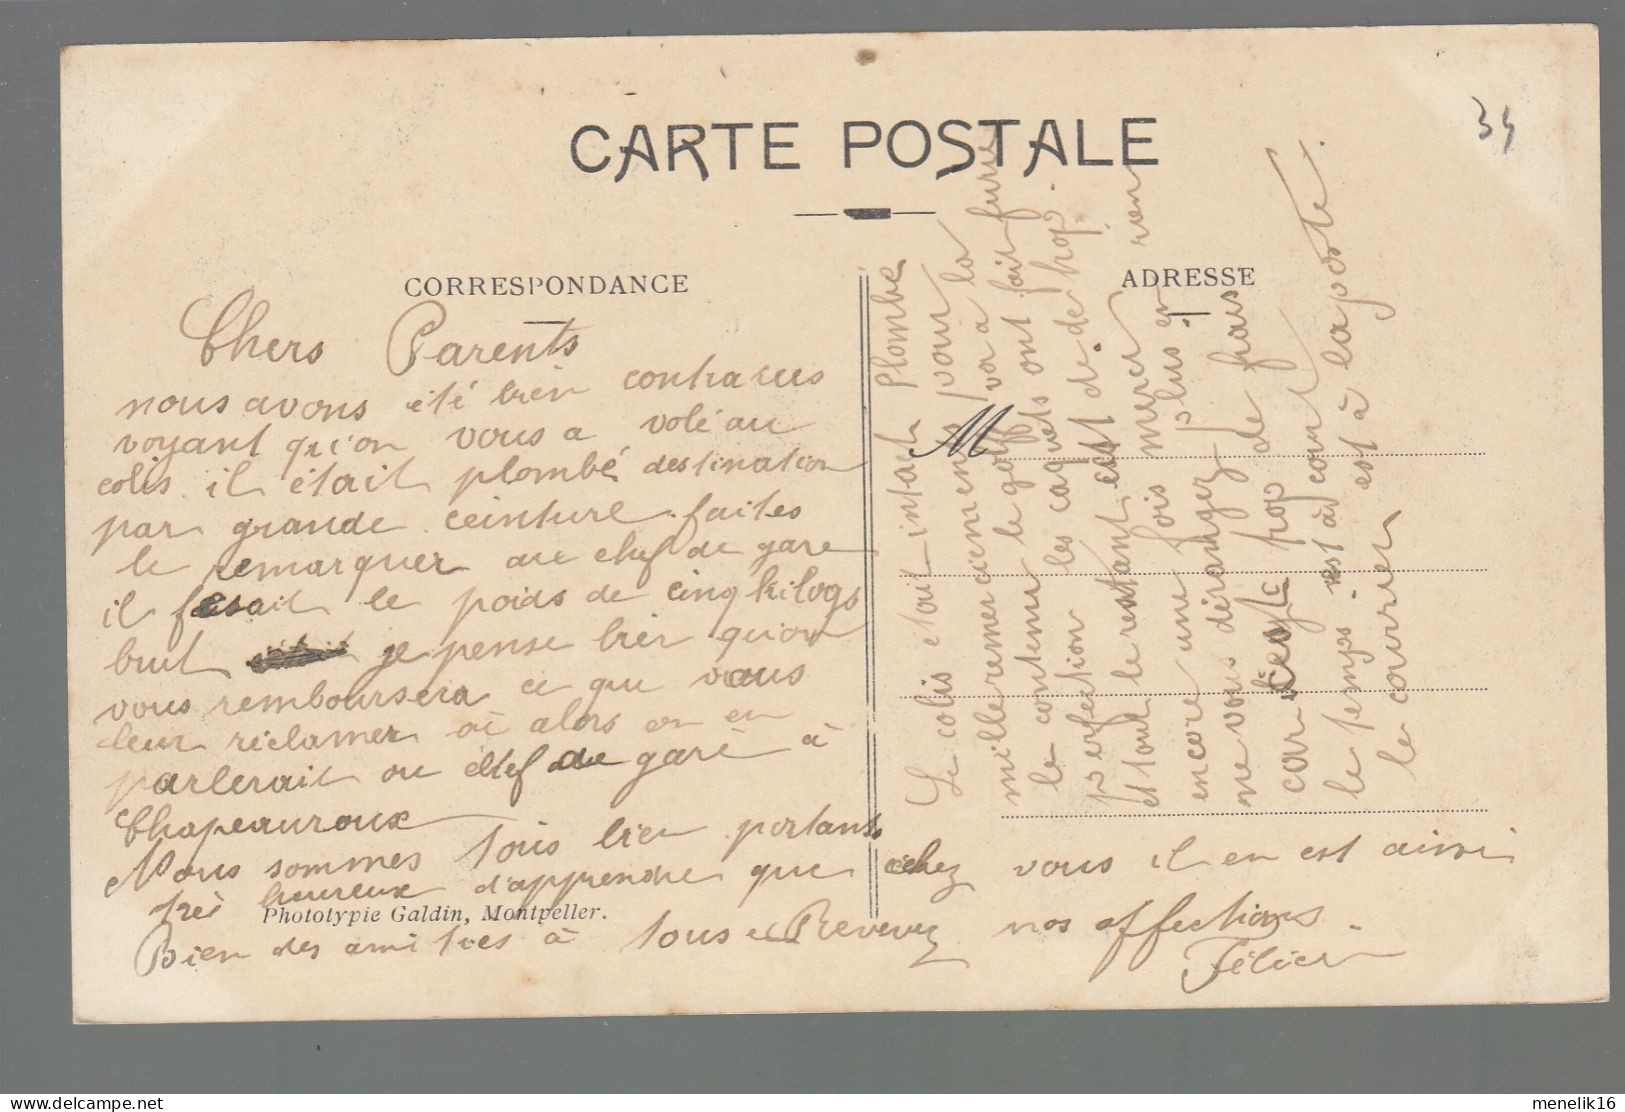 34
CARTE POSTALE
CORRESPONDANCE
ADRESSE
M
Chers Parents
nous avons été bien contraries
voyant qu'on vous a volé au
colis il était plombé destination
par grande ceinture faites
le remarquer au chef de gare
il faisait le poids de cinq kilogs
brut je pense bien qu'on
vous remboursera ce que vous
leur réclamer où alors on en
parlerait au chef de gare à
Chapeauroux
Nous sommes tous bien portants
très heureux d'apprendre que chez vous il en est ainsi
Phototypie Galdin, Montpeller.
Bien des amities à tous Recevez nos affections.
Félicien
Le colis était intact Plombé
mille remerciements pour la
le contenu le goff va a la
perfection les caquets ont fait furie
et tout le restant est de de hop.
encore une fois merci rien
ne vous dérangez plus en
car c'est trop de frais
le temps est à court
le courrier est à la poste.
menelik16